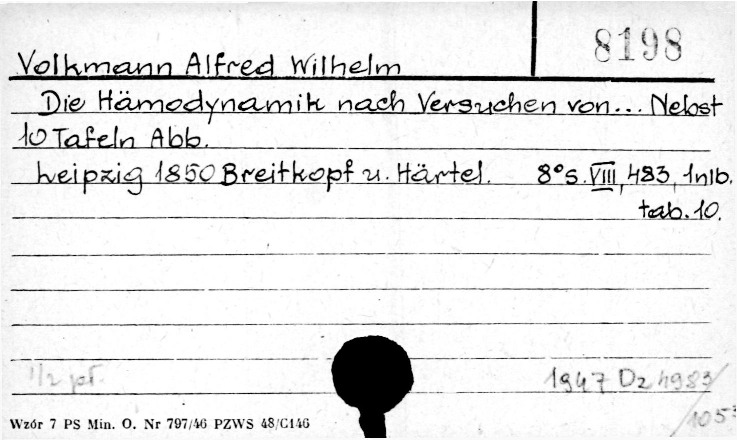 8198
Volkmann Alfred Wilhelm
Die Hämodynamik nach Versuchen von... Nebst
10 Tafeln Abb.
Leipzig 1850 Breitkopf u. Härtel. 8° s. VIII, 483, 1nlb.
tab. 10.
1/2 pł. 1947 Dz 4983/
/1053
Wzór 7 PS Min. O. Nr 797/46 PZWS 48/C146